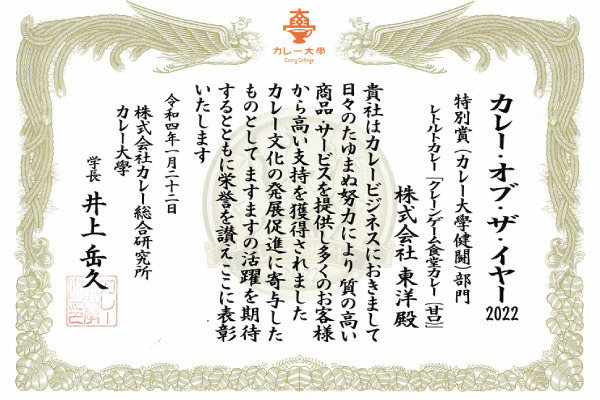 カレー大學
Curry College
カレー・オブ・ザ・イヤー2022
特別賞(カレー大學健闘)部門
レトルトカレー「クレーンゲーム食堂カレー(甘口)」
株式会社 東洋 殿
貴社はカレービジネスにおきまして
日々のたゆまぬ努力により質の高い
商品・サービスを提供し多くのお客様
から高い支持を獲得されました
カレー文化の発展促進に寄与した
ものとして ますますの活躍を期待
するとともに栄誉を讃え ここに表彰
いたします
令和四年一月二十二日
株式会社カレー総合研究所
カレー大學
学長 井上 岳久